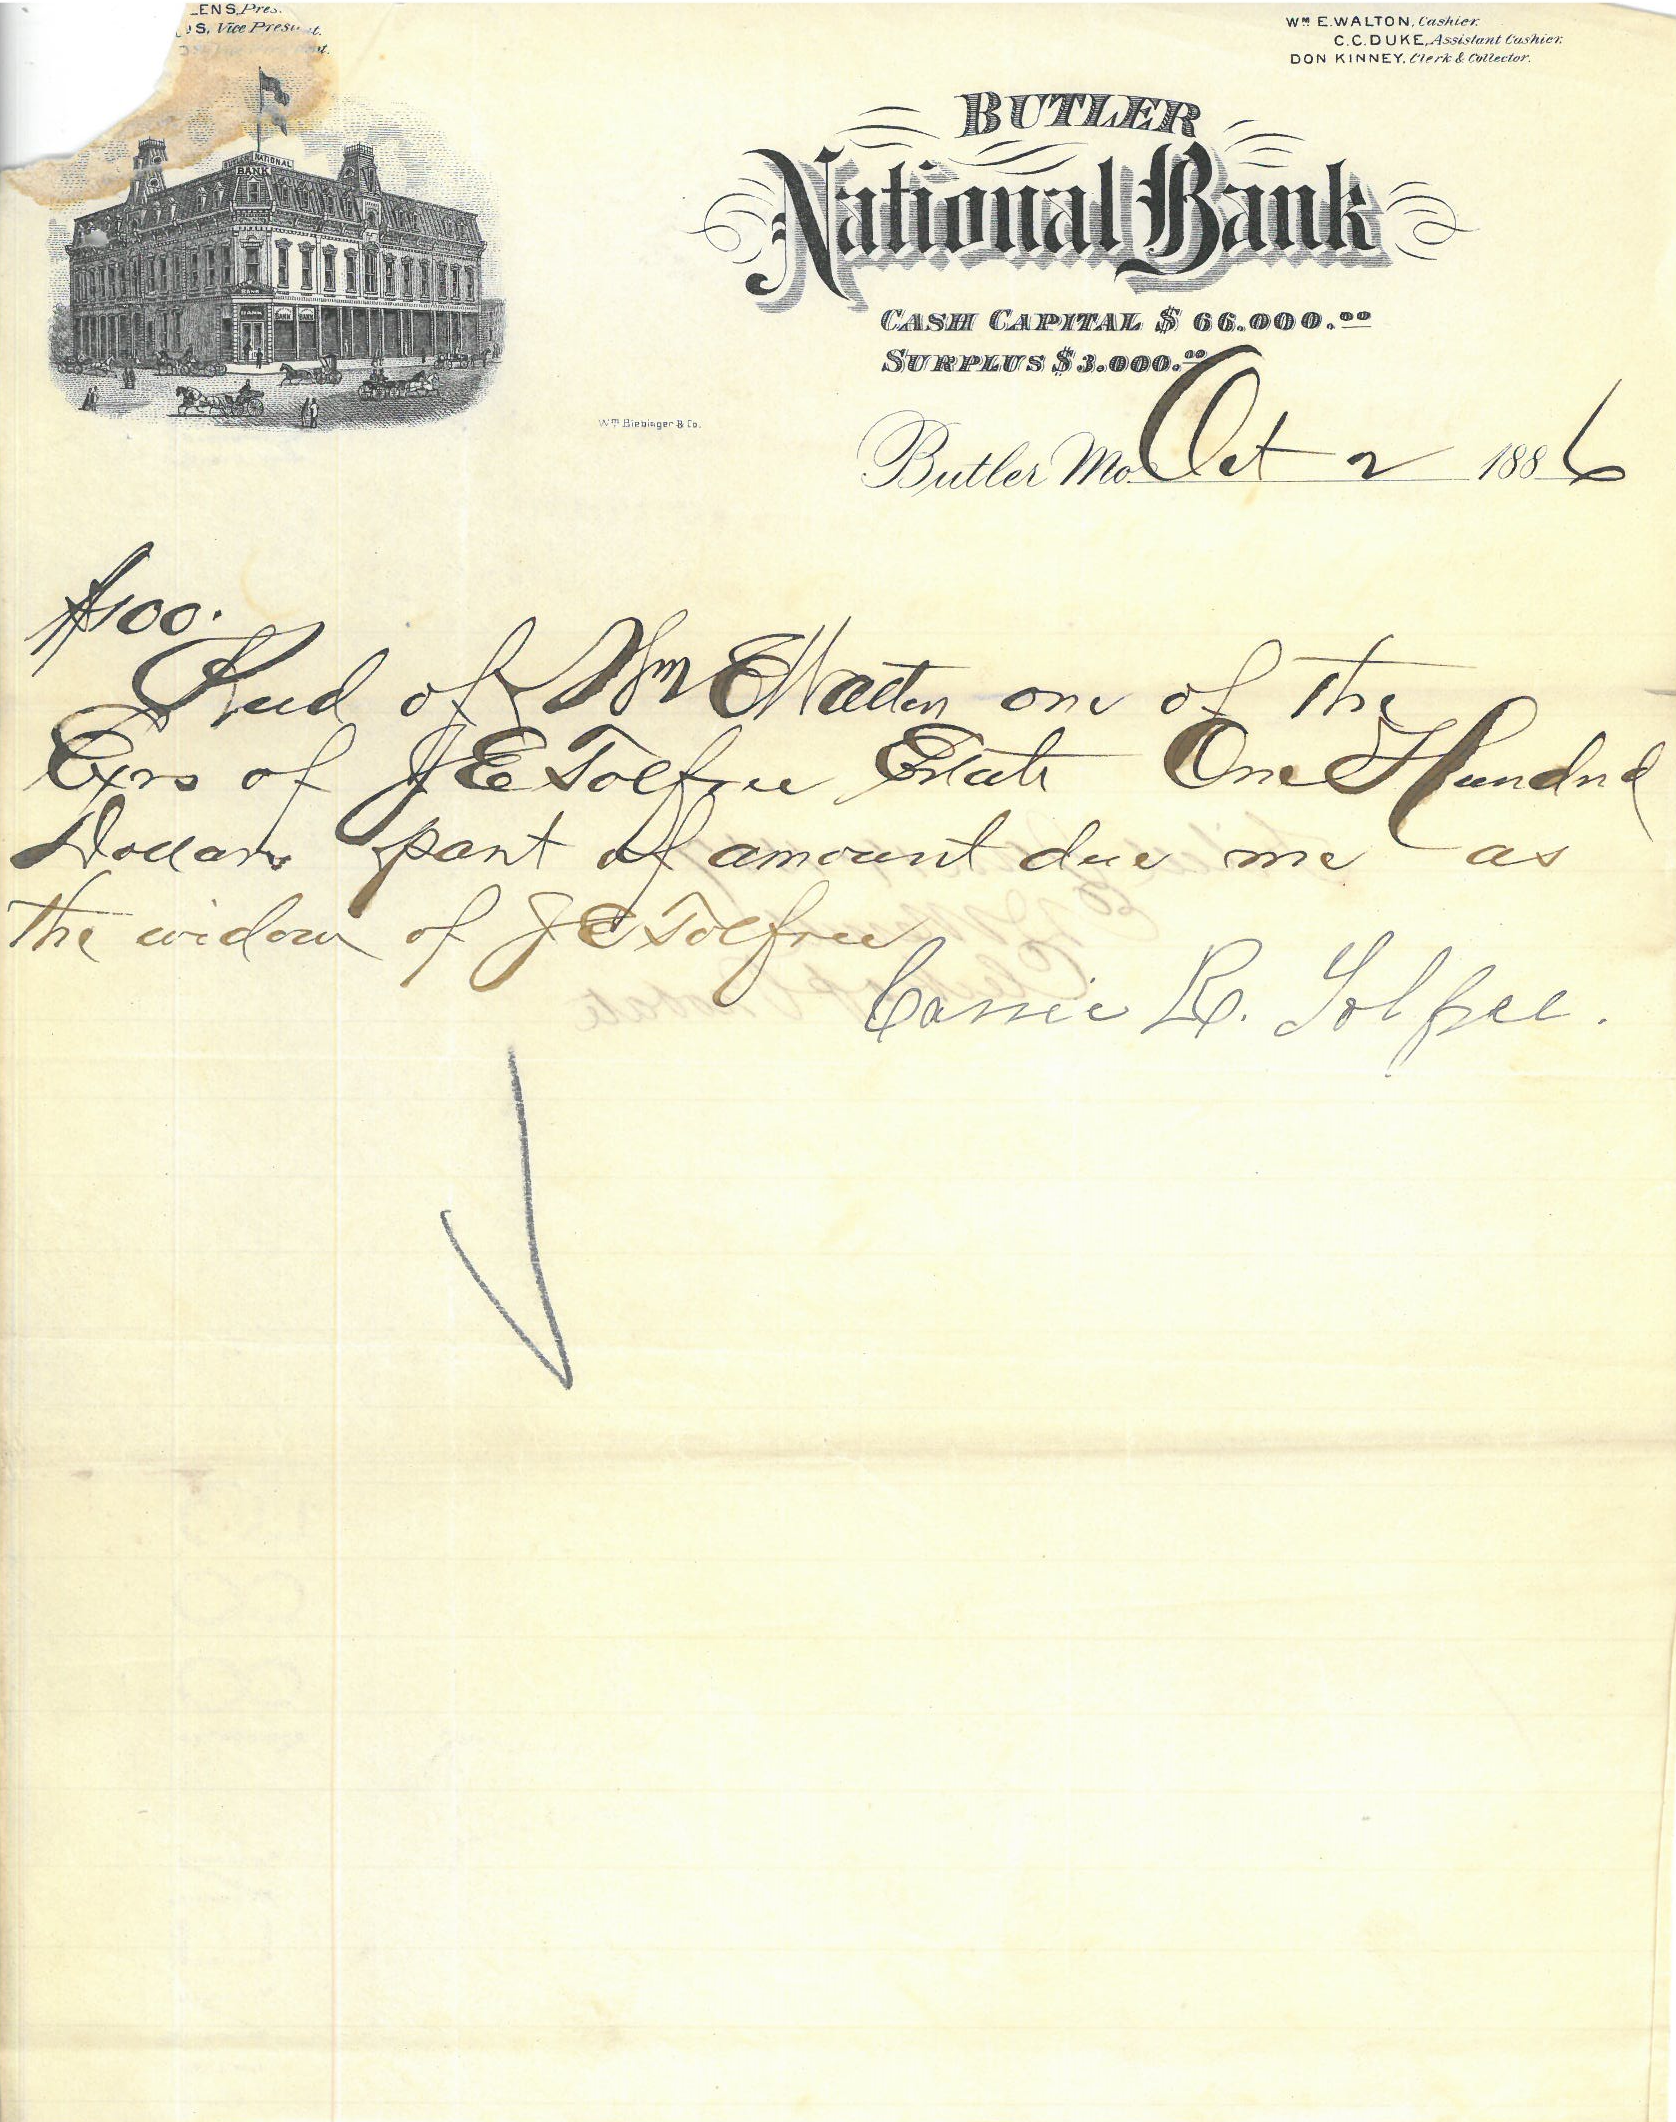 LENS, Pres.
DS, Vice President.
WM E. WALTON, Cashier.
C. C. DUKE, Assistant Cashier.
DON KINNEY, Clerk & Collector.
BUTLER NATIONAL
BANK
BANK
BANK
BANK BANK
BUTLER
National Bank
CASH CAPITAL $ 66.000.00
SURPLUS $ 3.000.00
Wm Biebinger & Co.
Butler Mo. Oct 2 1886
$100.
Recd of Wm E Walton one of the
Exrs of J E Tolfree Estate One Hundred
Dollars part of amount due me as
the widow of J E Tolfree
Cassie R. Tolfree.